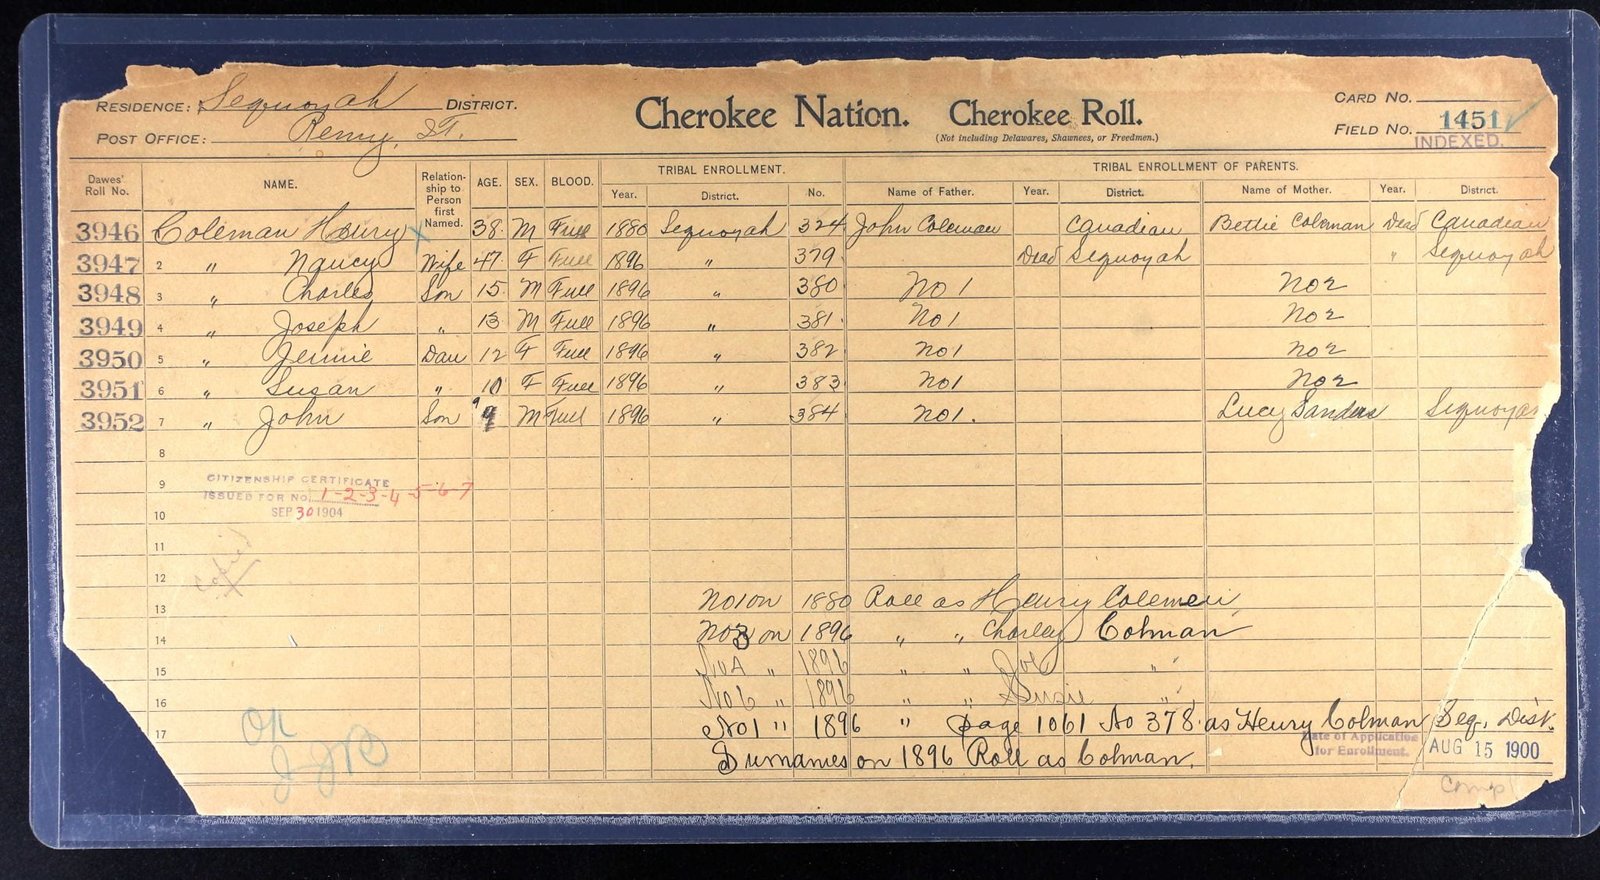 RESIDENCE: Sequoyah DISTRICT.
POST OFFICE: Remy, I.T.
Cherokee Nation. Cherokee Roll.
(Not including Delawares, Shawnees, or Freedmen.)
CARD NO.
FIELD NO. 1451
INDEXED.
Dawes' Roll No. NAME. Relationship to Person first Named. AGE. SEX. BLOOD. TRIBAL ENROLLMENT. TRIBAL ENROLLMENT OF PARENTS.
Year. District. No. Name of Father. Year. District. Name of Mother. Year. District.
3946 Coleman Henry 38 M Full 1880 Sequoyah 324 John Coleman Canadian Bettie Coleman Dead Canadian
3947 2 " Nancy Wife 47 F Full 1896 " 379 Dead Sequoyah " Sequoyah
3948 3 " Charles Son 15 M Full 1896 " 380 No 1 No 2
3949 4 " Joseph " 13 M Full 1896 " 381 No 1 No 2
3950 5 " Jennie Dau 12 F Full 1896 " 382 No 1 No 2
3951 6 " Susan " 10 F Full 1896 " 383 No 1 No 2
3952 7 " John Son 9 M Full 1896 " 384 No 1. Lucy Sanders Sequoyah
8
9
CITIZENSHIP CERTIFICATE
ISSUED FOR NO. 1-2-3-4-5-6-7
SEP 30 1904
10
11
Copied
12
13 No 1 on 1880 Roll as Henry Colemen
14 No 3 on 1896 " " Charley Colman
15 No 4 " 1896 " " Joe " "
16 No 6 " 1896 " " Susie " "
17 No 1 " 1896 " page 1061 No 378 as Henry Colman Seq. Dist.
Surnames on 1896 Roll as Colman.
Date of Application
for Enrollment.
AUG 15 1900
OK
Comp